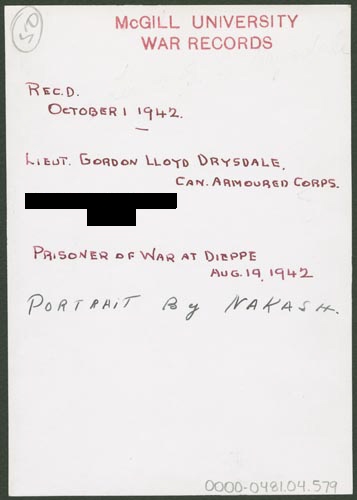 McGILL UNIVERSITY
WAR RECORDS
REC.D.
OCTOBER 1 1942.
LIEUT. GORDON LLOYD DRYSDALE,
CAN. ARMOURED CORPS.
PRISONER OF WAR AT DIEPPE
AUG. 19, 1942
PORTRAIT By NAKASH.
0000-0481.04.579